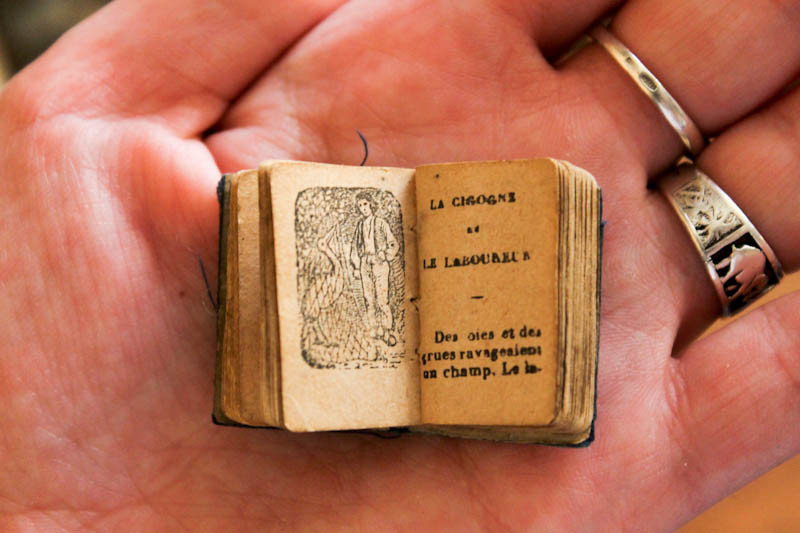 LA CIGOGNE
et
LE LABOUREUR
Des oies et des
grues ravageaient
un champ. Le la-